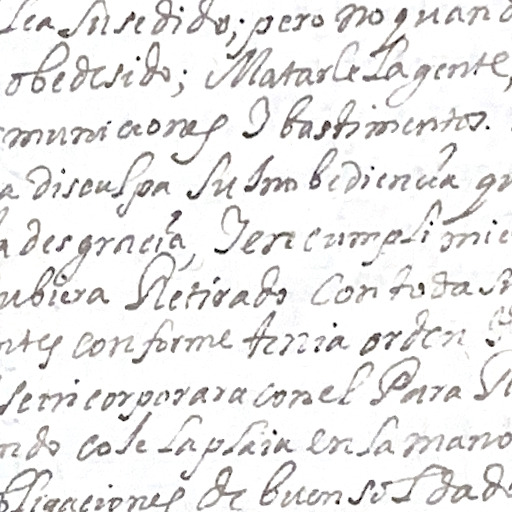 lea susedido; pero no quand
obedesido; Matarle la gente,
municiones I bastimentos.
a disculpa su Inobediencia qu
a desgracia, I en cumplimie
ubiera Retirado con toda su
ntes conforme tenia orden
se incorporara con el Para R
ndo cole la plaia en la mano
bligaciones de buen soldado